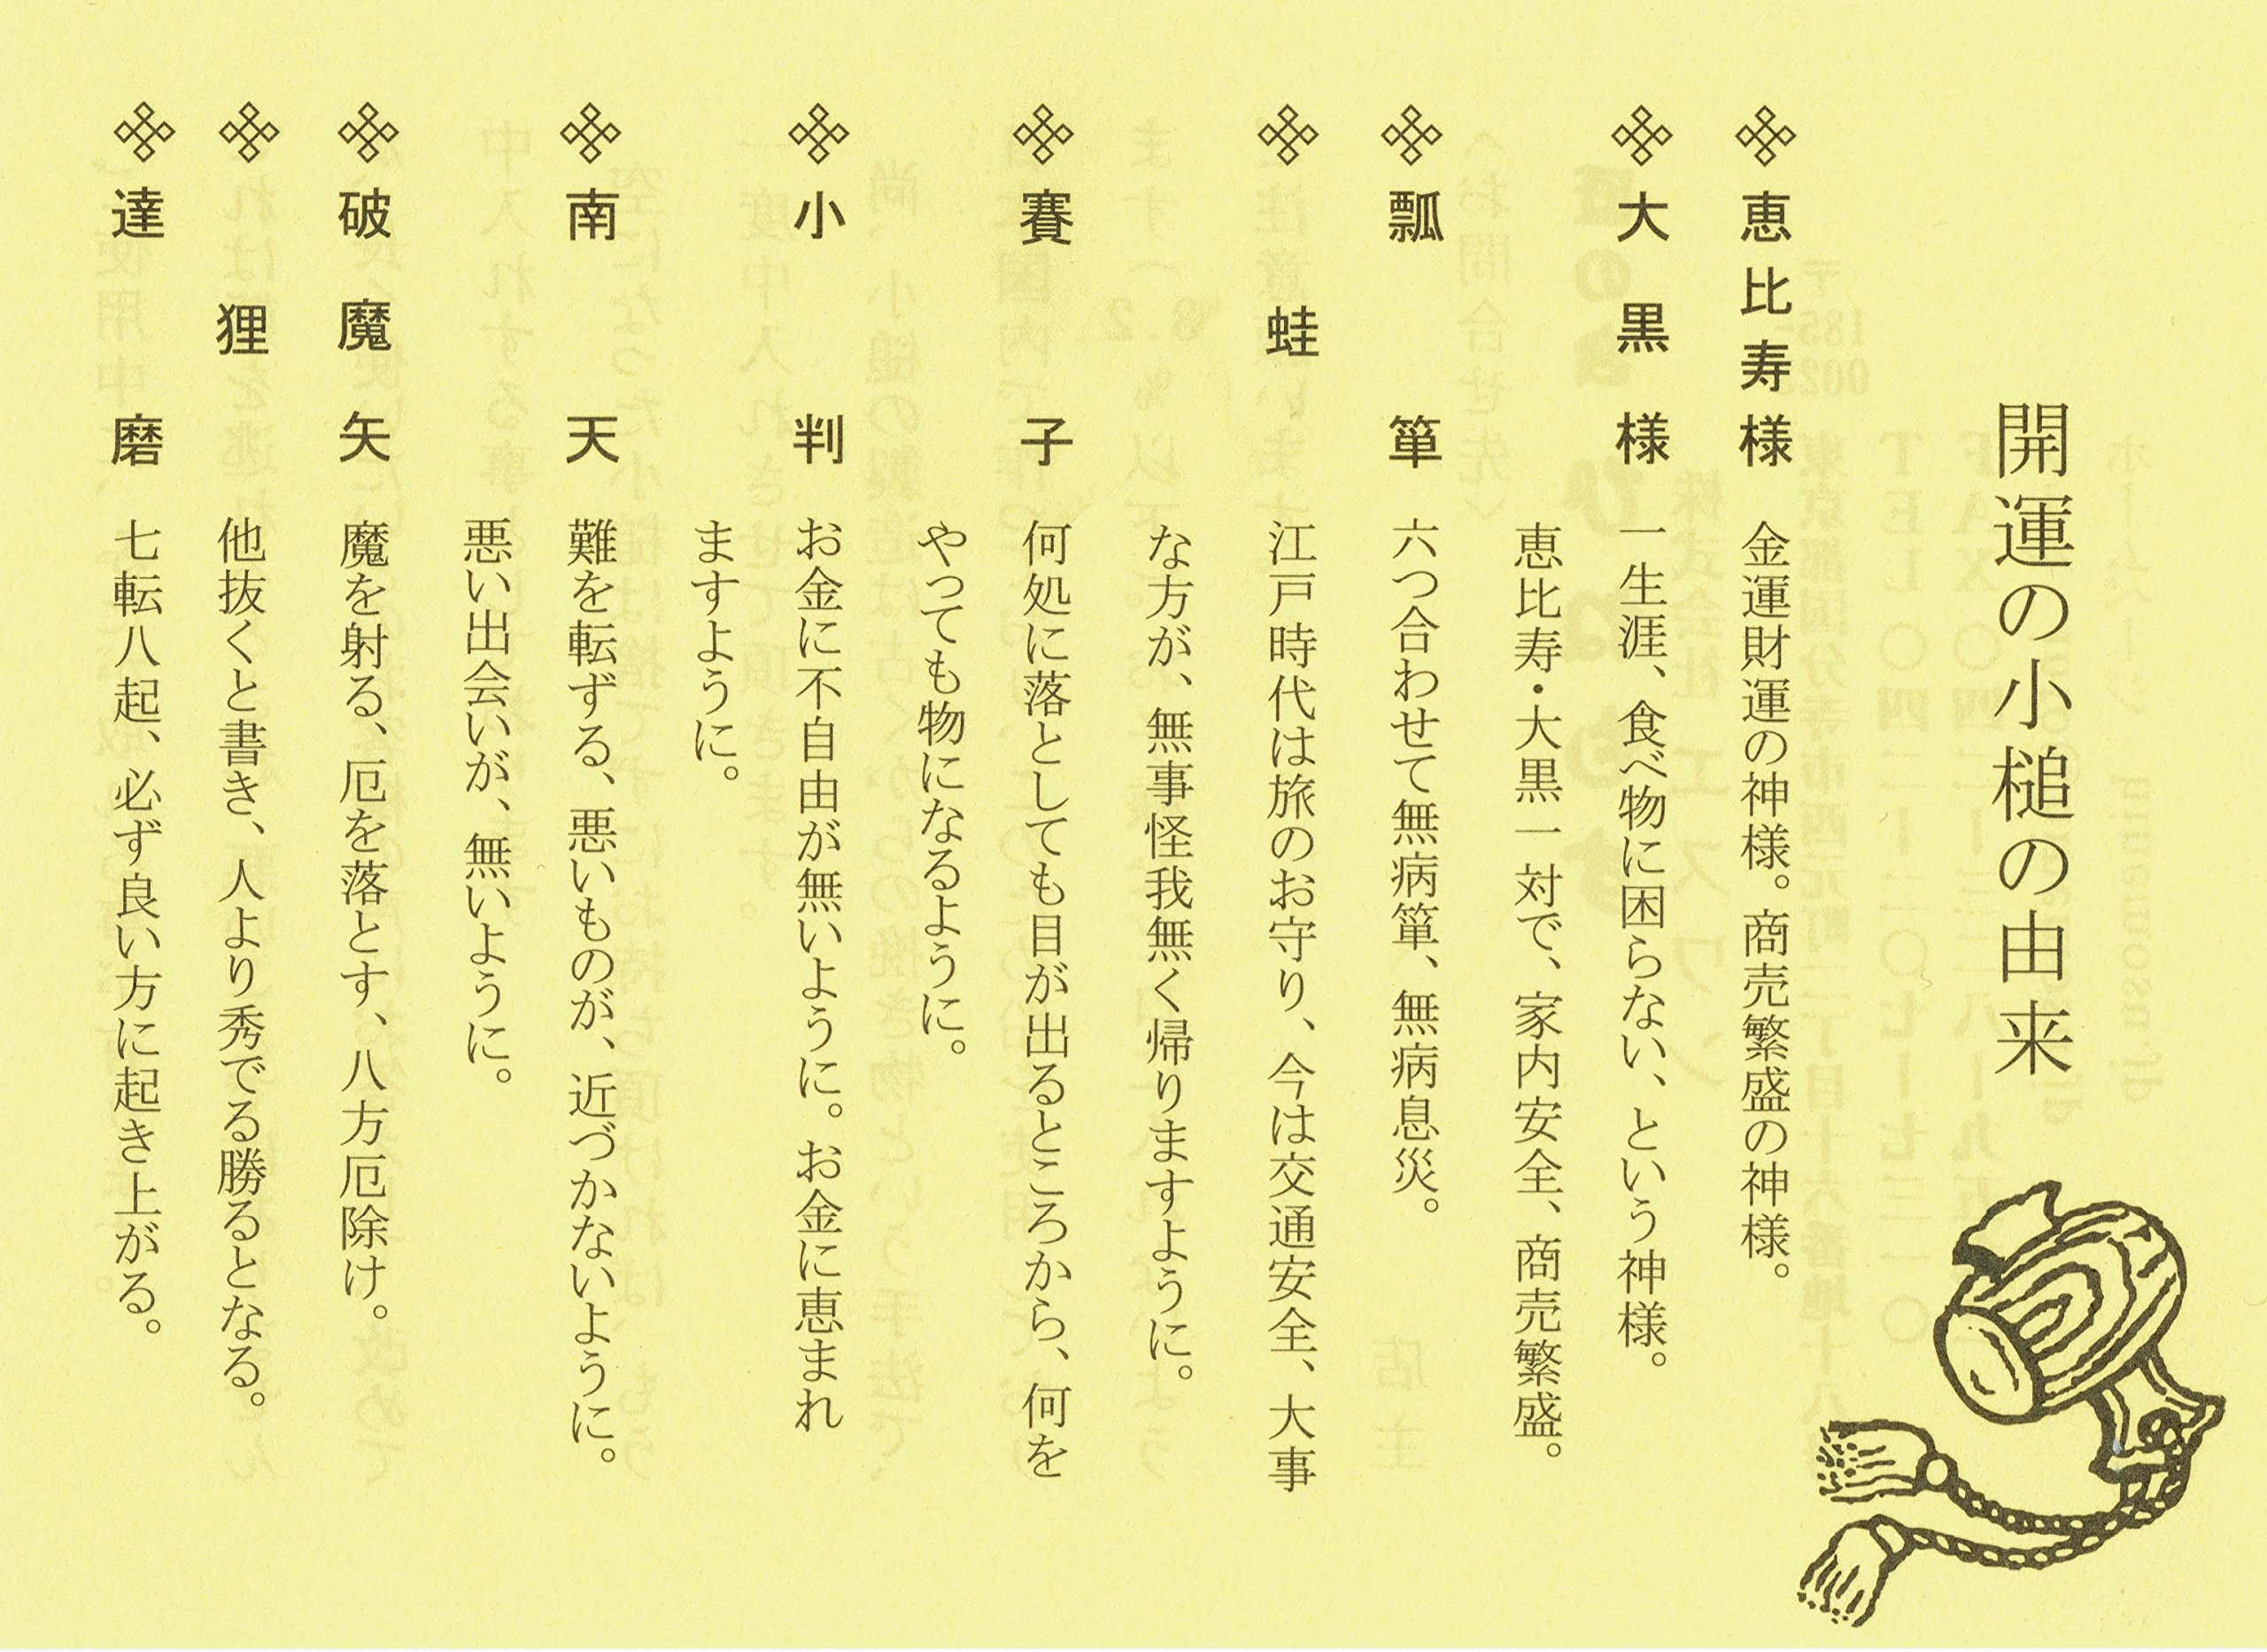 開運の小槌の由来
恵比寿様 金運財運の神様。商売繁盛の神様。
大黒様 一生涯、食べ物に困らない、という神様。
恵比寿・大黒一対で、家内安全、商売繁盛。
瓢箪 六つ合わせて無病箪、無病息災。
蛙 江戸時代は旅のお守り、今は交通安全、大事
な方が、無事怪我無く帰りますように。
賽子 何処に落としても目が出るところから、何を
やっても物になるように。
小判 お金に不自由が無いように。お金に恵まれ
ますように。
南天 難を転ずる、悪いものが、近づかないように。
悪い出会いが、無いように。
破魔矢 魔を射る、厄を落とす、八方厄除け。
狸 他抜くと書き、人より秀でる勝るとなる。
達磨 七転八起、必ず良い方に起き上がる。